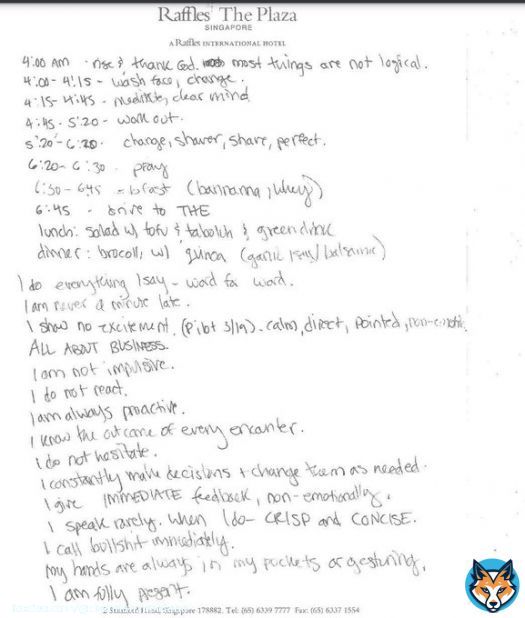 Raffles The Plaza
SINGAPORE
A Raffles INTERNATIONAL HOTEL
4:00 AM · rise & thank God. most things are not logical.
4:00 - 4:15 - wash face, change.
4:15 - 4:45 - meditate, clear mind
4:45 - 5:20 - work out.
5:20 - 6:20 - change, shower, shave, perfect.
6:20 - 6:30 - pray
6:30 - 645 - brfast (bannanna, whey)
6:45 - drive to THE
lunch: salad w/ tofu & taboluh & green drink
dinner: brocoli, w/ quinoa (garlic /say/ balsamic)
I do everything I say - word for word.
I am never a minute late.
I show no excitement. calm, direct, pointed, non-emotic
ALL ABOUT BUSINESS.
I am not impulsive.
I do not react.
I am always proactive.
I know the outcome of every encounter.
I do not hesitate.
I constantly make decisions + change them as needed.
I give IMMEDIATE feedback, non-emotionally.
I speak rarely. When I do - CRISP and CONCISE.
I call bullshit immediately.
My hands are always in my pockets or gesturing.
I am fully present.
2 Stamford Road, Singapore 178882. Tel: (65) 6339 7777 Fax: (65) 6337 1554